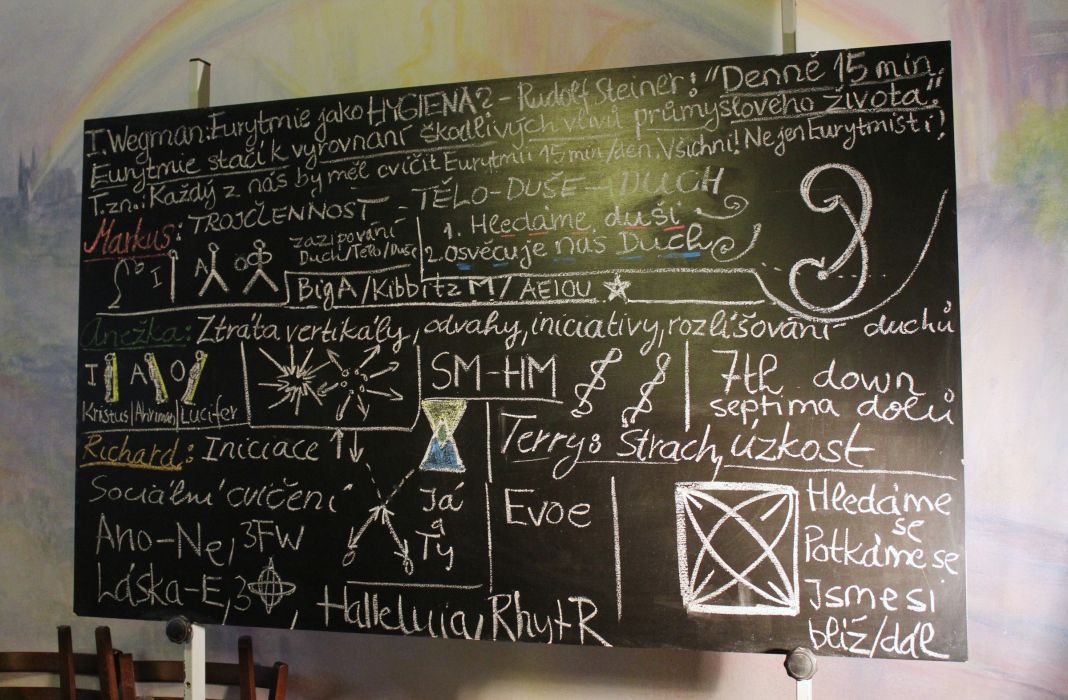 I. Wegman: Eurytmie jako HYGIENA? - Rudolf Steiner: "Denně 15 min.
Eurytmie stačí k vyrovnání škodlivých vlivů průmyslového života".
T.zn.: Každý z nás by měl cvičit Eurytmii 15 min/den. Všichni! Nejen Eurytmisti!
Markus: TROJČLENNOST - TĚLO-DUŠE-DUCH
zazipování
Duch/Tělo/Duše
1. Hledáme duši
2. Osvěcuje nás Duch
I A O
Big A/Kibbitz M/AEIOU
Anežka: Ztráta vertikály, odvahy, iniciativy, rozlišování duchů
I A O
Kristus|Ahriman|Lucifer
SM-HM
7th down
septima dolů
Richard: Iniciace
Terry: Strach, úzkost
Sociální cvičení
Ano-Ne, 3FW
Láska-E, 3
Já
a
Ty
Halleluja, Rhyt R
Evoe
Hledáme
se
Potkáme se
Jsme si
blíž/dál